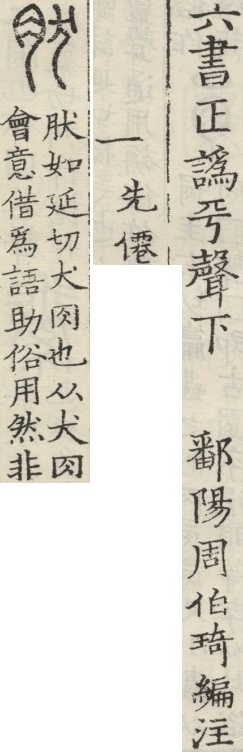 六書正譌平聲下 鄱陽周伯琦編注
一先僊
肰如延切犬肉也从犬肉
會意借爲語助俗用然非